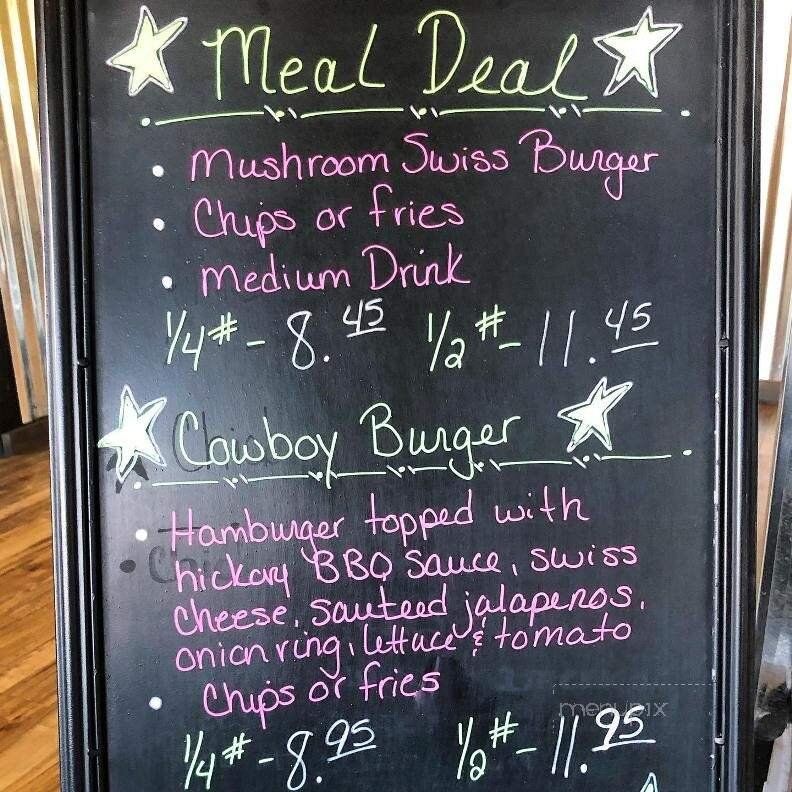 Meal Deal
• Mushroom Swiss Burger
• Chips or fries
• Medium Drink
1/4# - 8.45 1/2# - 11.45
Cowboy Burger
• Hamburger topped with
hickory BBQ Sauce, swiss
cheese, sauteed jalapenos,
onion ring, lettuce & tomato
• Chips or fries
menupix
1/4# - 8.95 1/2# - 11.95